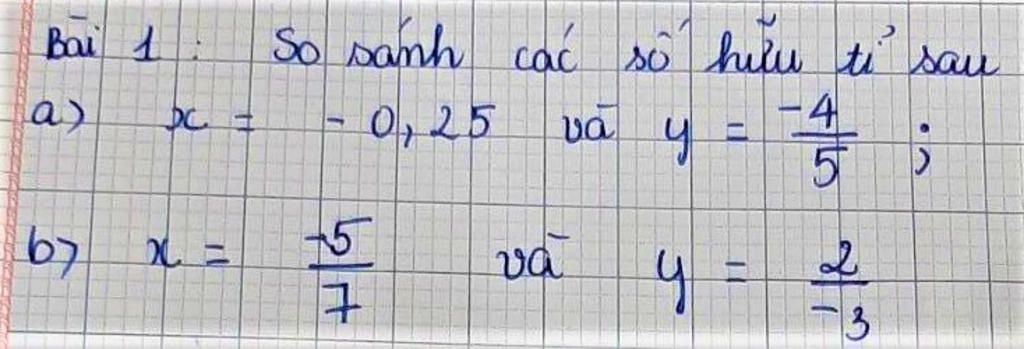 Bài 1 : So sánh các số hữu tỉ sau
a) x = - 0,25 và y = -4/5 ;
b) x = -5/7 và y = 2/-3